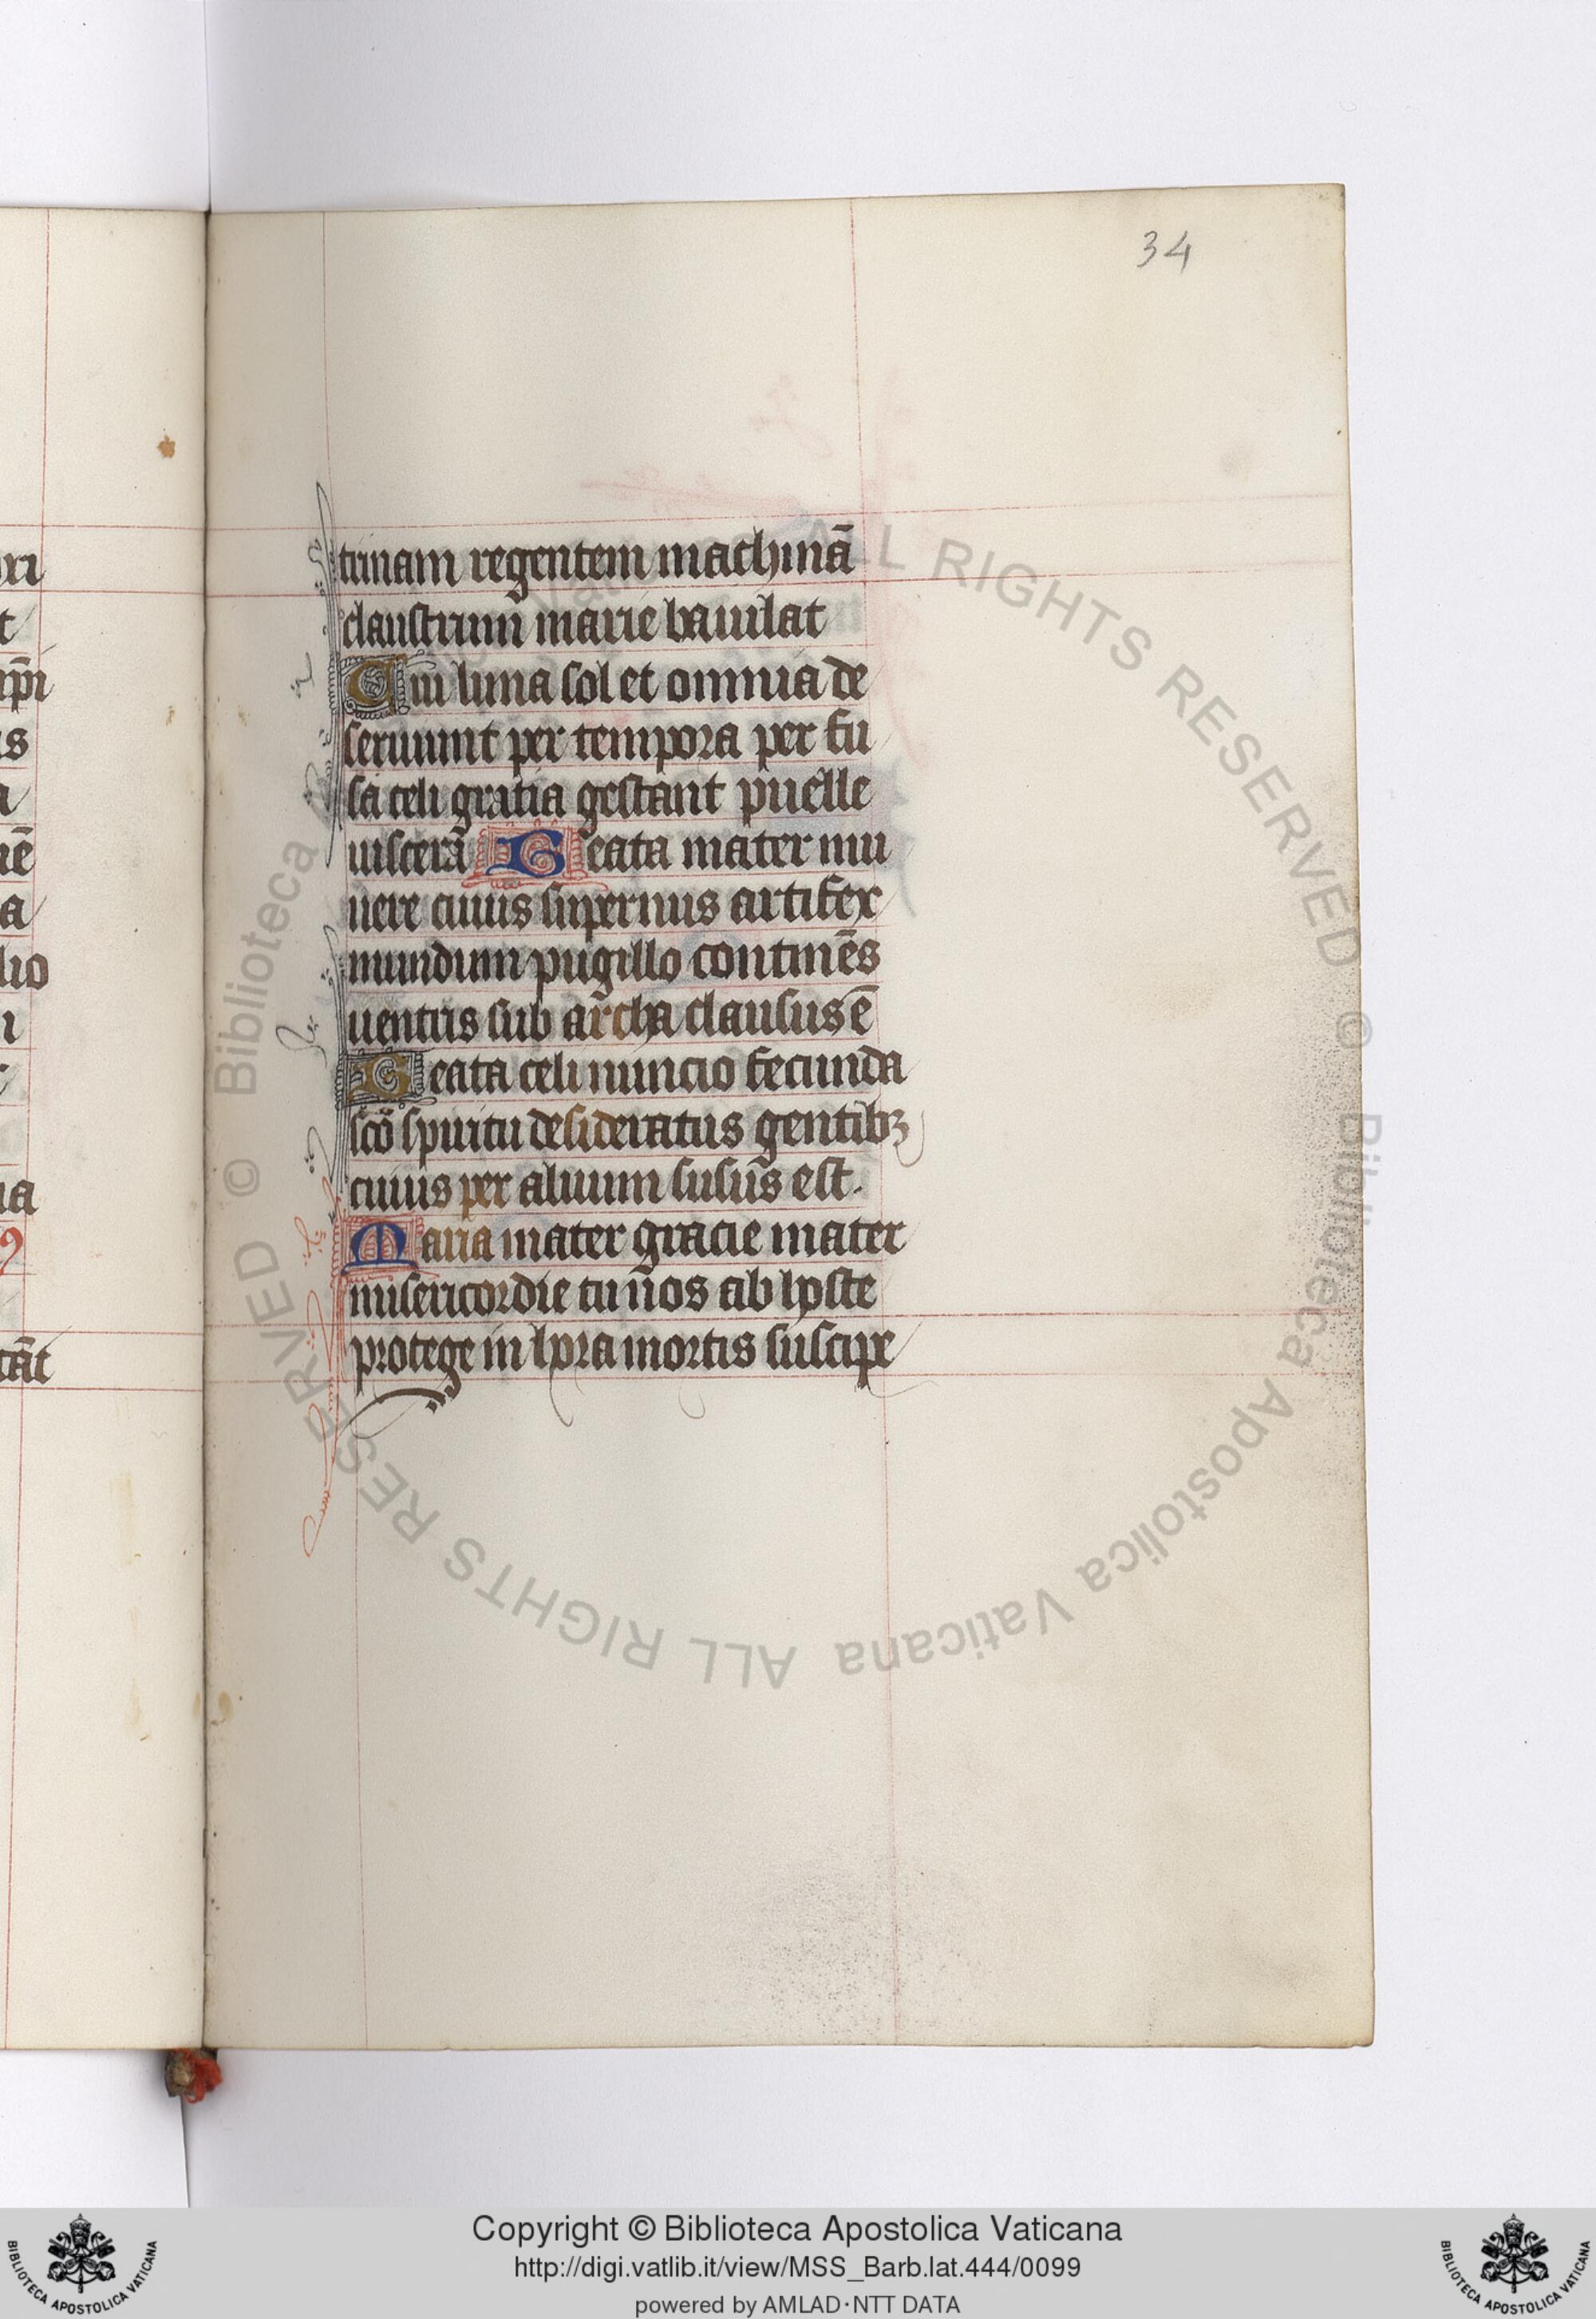 34
trinam regentem machinā
claustrum marie baiulat
Cui luna sol et omnia de
seruiunt per tempora per fu
sa celi gratia gestant puelle
uiscera Beata mater mu
nere cuius supernus artifex
mundum pugillo continēs
uentris sub archa clausus ē
Beata celi nuncio fecunda
sco spiritu desideratus gentibꝫ
cuius per aluum fusus est.
Maria mater gracie mater
misericordie tu nos ab hoste
protege in hora mortis suscipe
ALL RIGHTS RESERVED © Biblioteca Apostolica Vaticana ALL RIGHTS RESERVED © Biblioteca
Copyright © Biblioteca Apostolica Vaticana
http://digi.vatlib.it/view/MSS_Barb.lat.444/0099
powered by AMLAD·NTT DATA
BIBLIOTECA APOSTOLICA VATICANA
BIBLIOTECA APOSTOLICA VATICANA